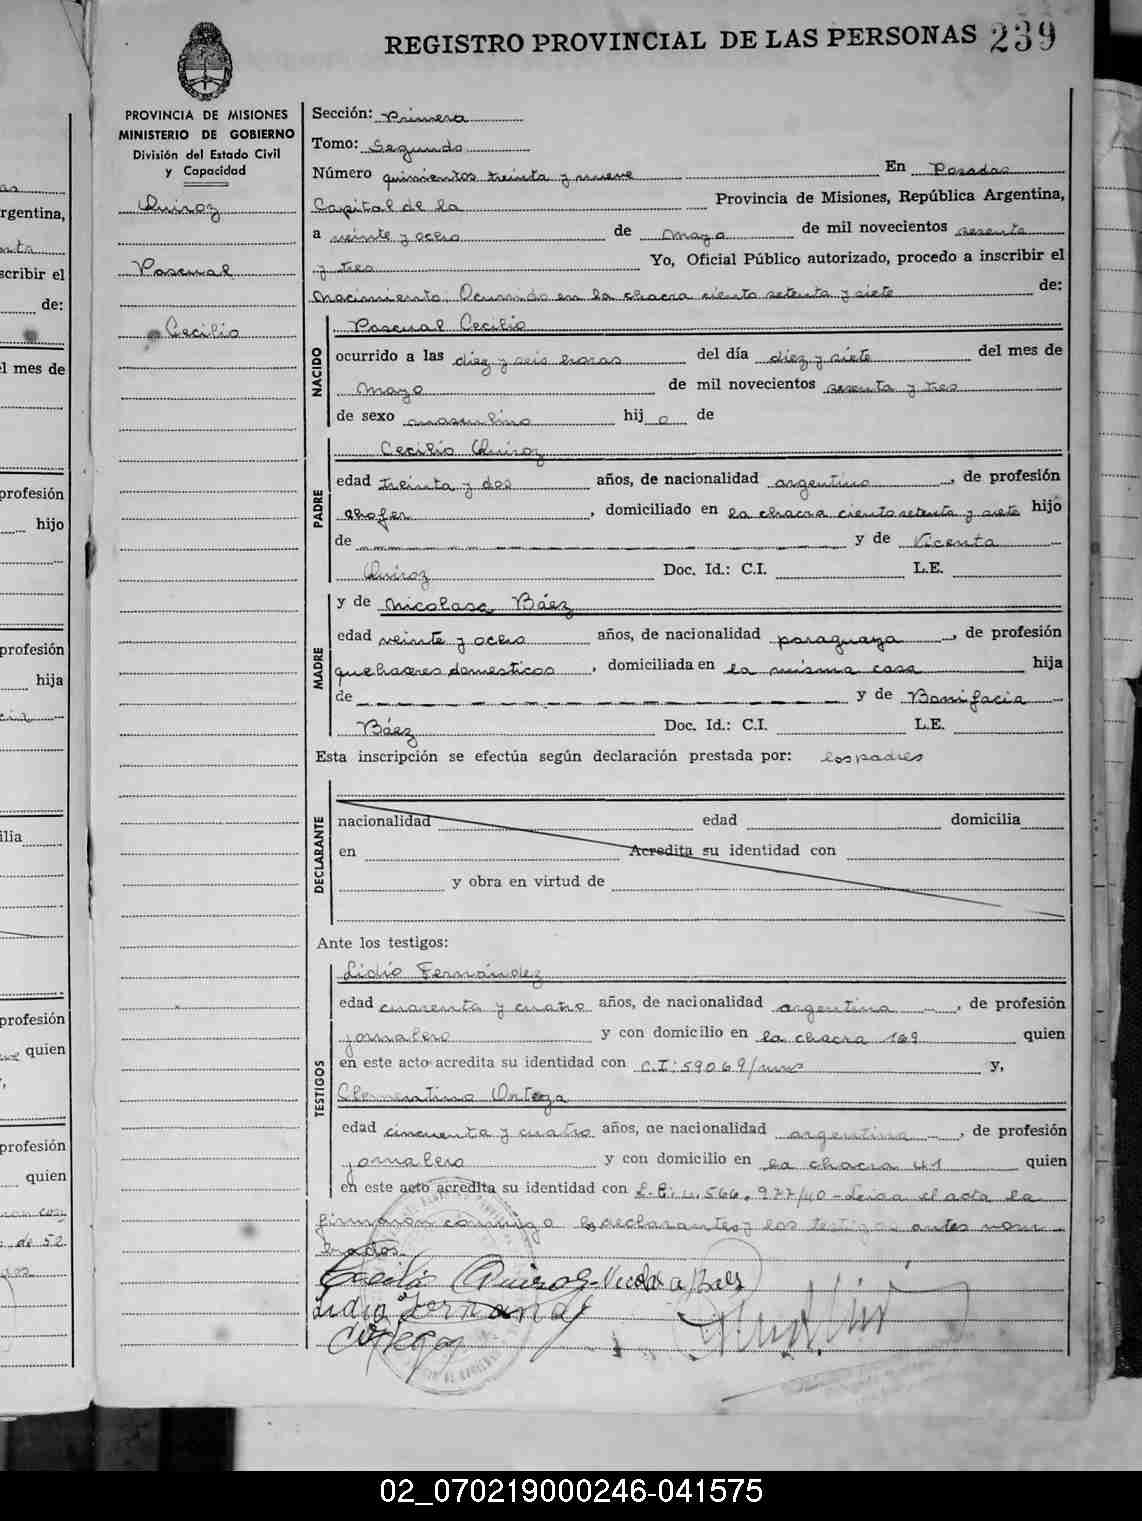 REGISTRO PROVINCIAL DE LAS PERSONAS 239
PROVINCIA DE MISIONES
MINISTERIO DE GOBIERNO
División del Estado Civil
y Capacidad
Quiroz
Pascual
Cecilio
Sección: Primera
Tomo: Segundo
Número quinientos treinta y nueve En Posadas
Capital de la Provincia de Misiones, República Argentina,
a veinte y ocho de mayo de mil novecientos sesenta
y tres Yo, Oficial Público autorizado, procedo a inscribir el
nacimiento. Ocurrido en la chacra ciento setenta y siete de:
NACIDO
Pascual Cecilio
ocurrido a las diez y seis horas del día diez y siete del mes de
mayo de mil novecientos sesenta y tres
de sexo masculino hij o de
PADRE
Cecilio Quiroz
edad treinta y dos años, de nacionalidad argentino, de profesión
chofer, domiciliado en la chacra ciento setenta y siete hijo
de y de Vicenta
Quiroz Doc. Id.: C.I. L.E.
MADRE
y de Nicolasa Báez
edad veinte y ocho años, de nacionalidad paraguaya, de profesión
quehaceres domesticos, domiciliada en la misma casa hija
de y de Bonifacia
Báez Doc. Id.: C.I. L.E.
Esta inscripción se efectúa según declaración prestada por: los padres
DECLARANTE
nacionalidad edad domicilia
en Acredita su identidad con
y obra en virtud de
Ante los testigos:
TESTIGOS
Lidio Fernández
edad cuarenta y cuatro años, de nacionalidad argentina, de profesión
jornalero y con domicilio en la chacra 169 quien
en este acto acredita su identidad con C.I: 59069/mnes y,
Clementino Ortega
edad cincuenta y cuatro años, de nacionalidad argentina, de profesión
jornalero y con domicilio en la chacra 41 quien
en este acto acredita su identidad con L.E: 4.566.977/40 - Leida el acta la
firmaron conmigo los declarantes y los testigos antes nom
brados.
Cecilio Quiroz - Nicolasa Baez
Lidio Fernandez
C Ortega
02_070219000246-041575